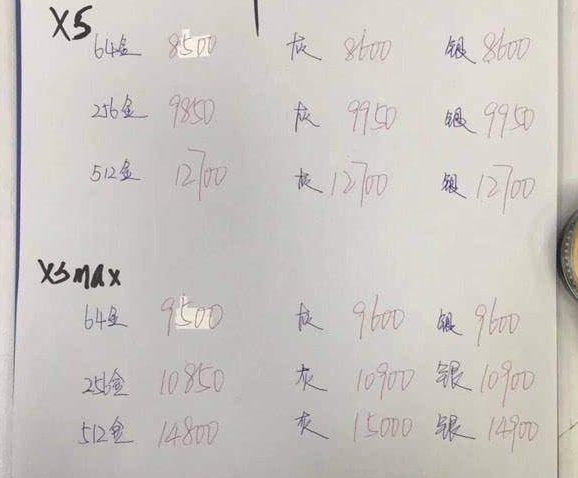 XS
64金 8500 灰 8600 银 8600
256金 9850 灰 9950 银 9950
512金 12700 灰 12700 银 12700
XSmax
64金 9500 灰 9600 银 9600
256金 10850 灰 10900 银 10900
512金 14800 灰 15000 银 14900